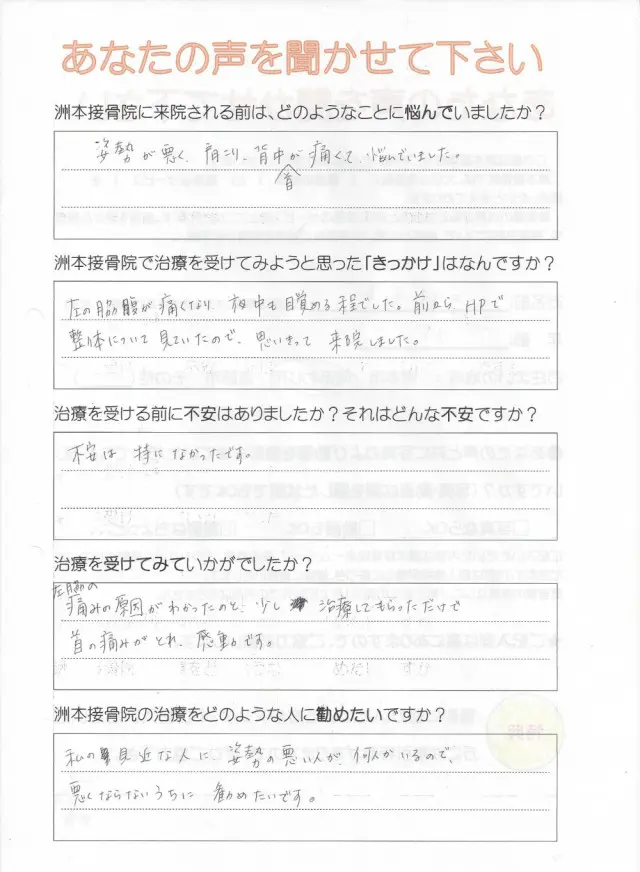 あなたの声を聞かせて下さい
洲本接骨院に来院される前は、どのようなことに悩んでいましたか？
姿勢が悪く、肩こり、背中が痛くて、悩んでいました。
首
洲本接骨院で治療を受けてみようと思った「きっかけ」はなんですか？
左の脇腹が痛くなり、夜中も目覚める程でした。前から、HPで
整体について見ていたので、思いきって来院しました。
治療を受ける前に不安はありましたか？それはどんな不安ですか？
不安は特になかったです。
治療を受けてみていかがでしたか？
左脇の
痛みの原因がわかったのと、少し治療してもらっただけで
首の痛みがとれ、感動です。
洲本接骨院の治療をどのような人に勧めたいですか？
私の身近な人に姿勢の悪い人が、何人かいるので、
悪くならないうちに勧めたいです。